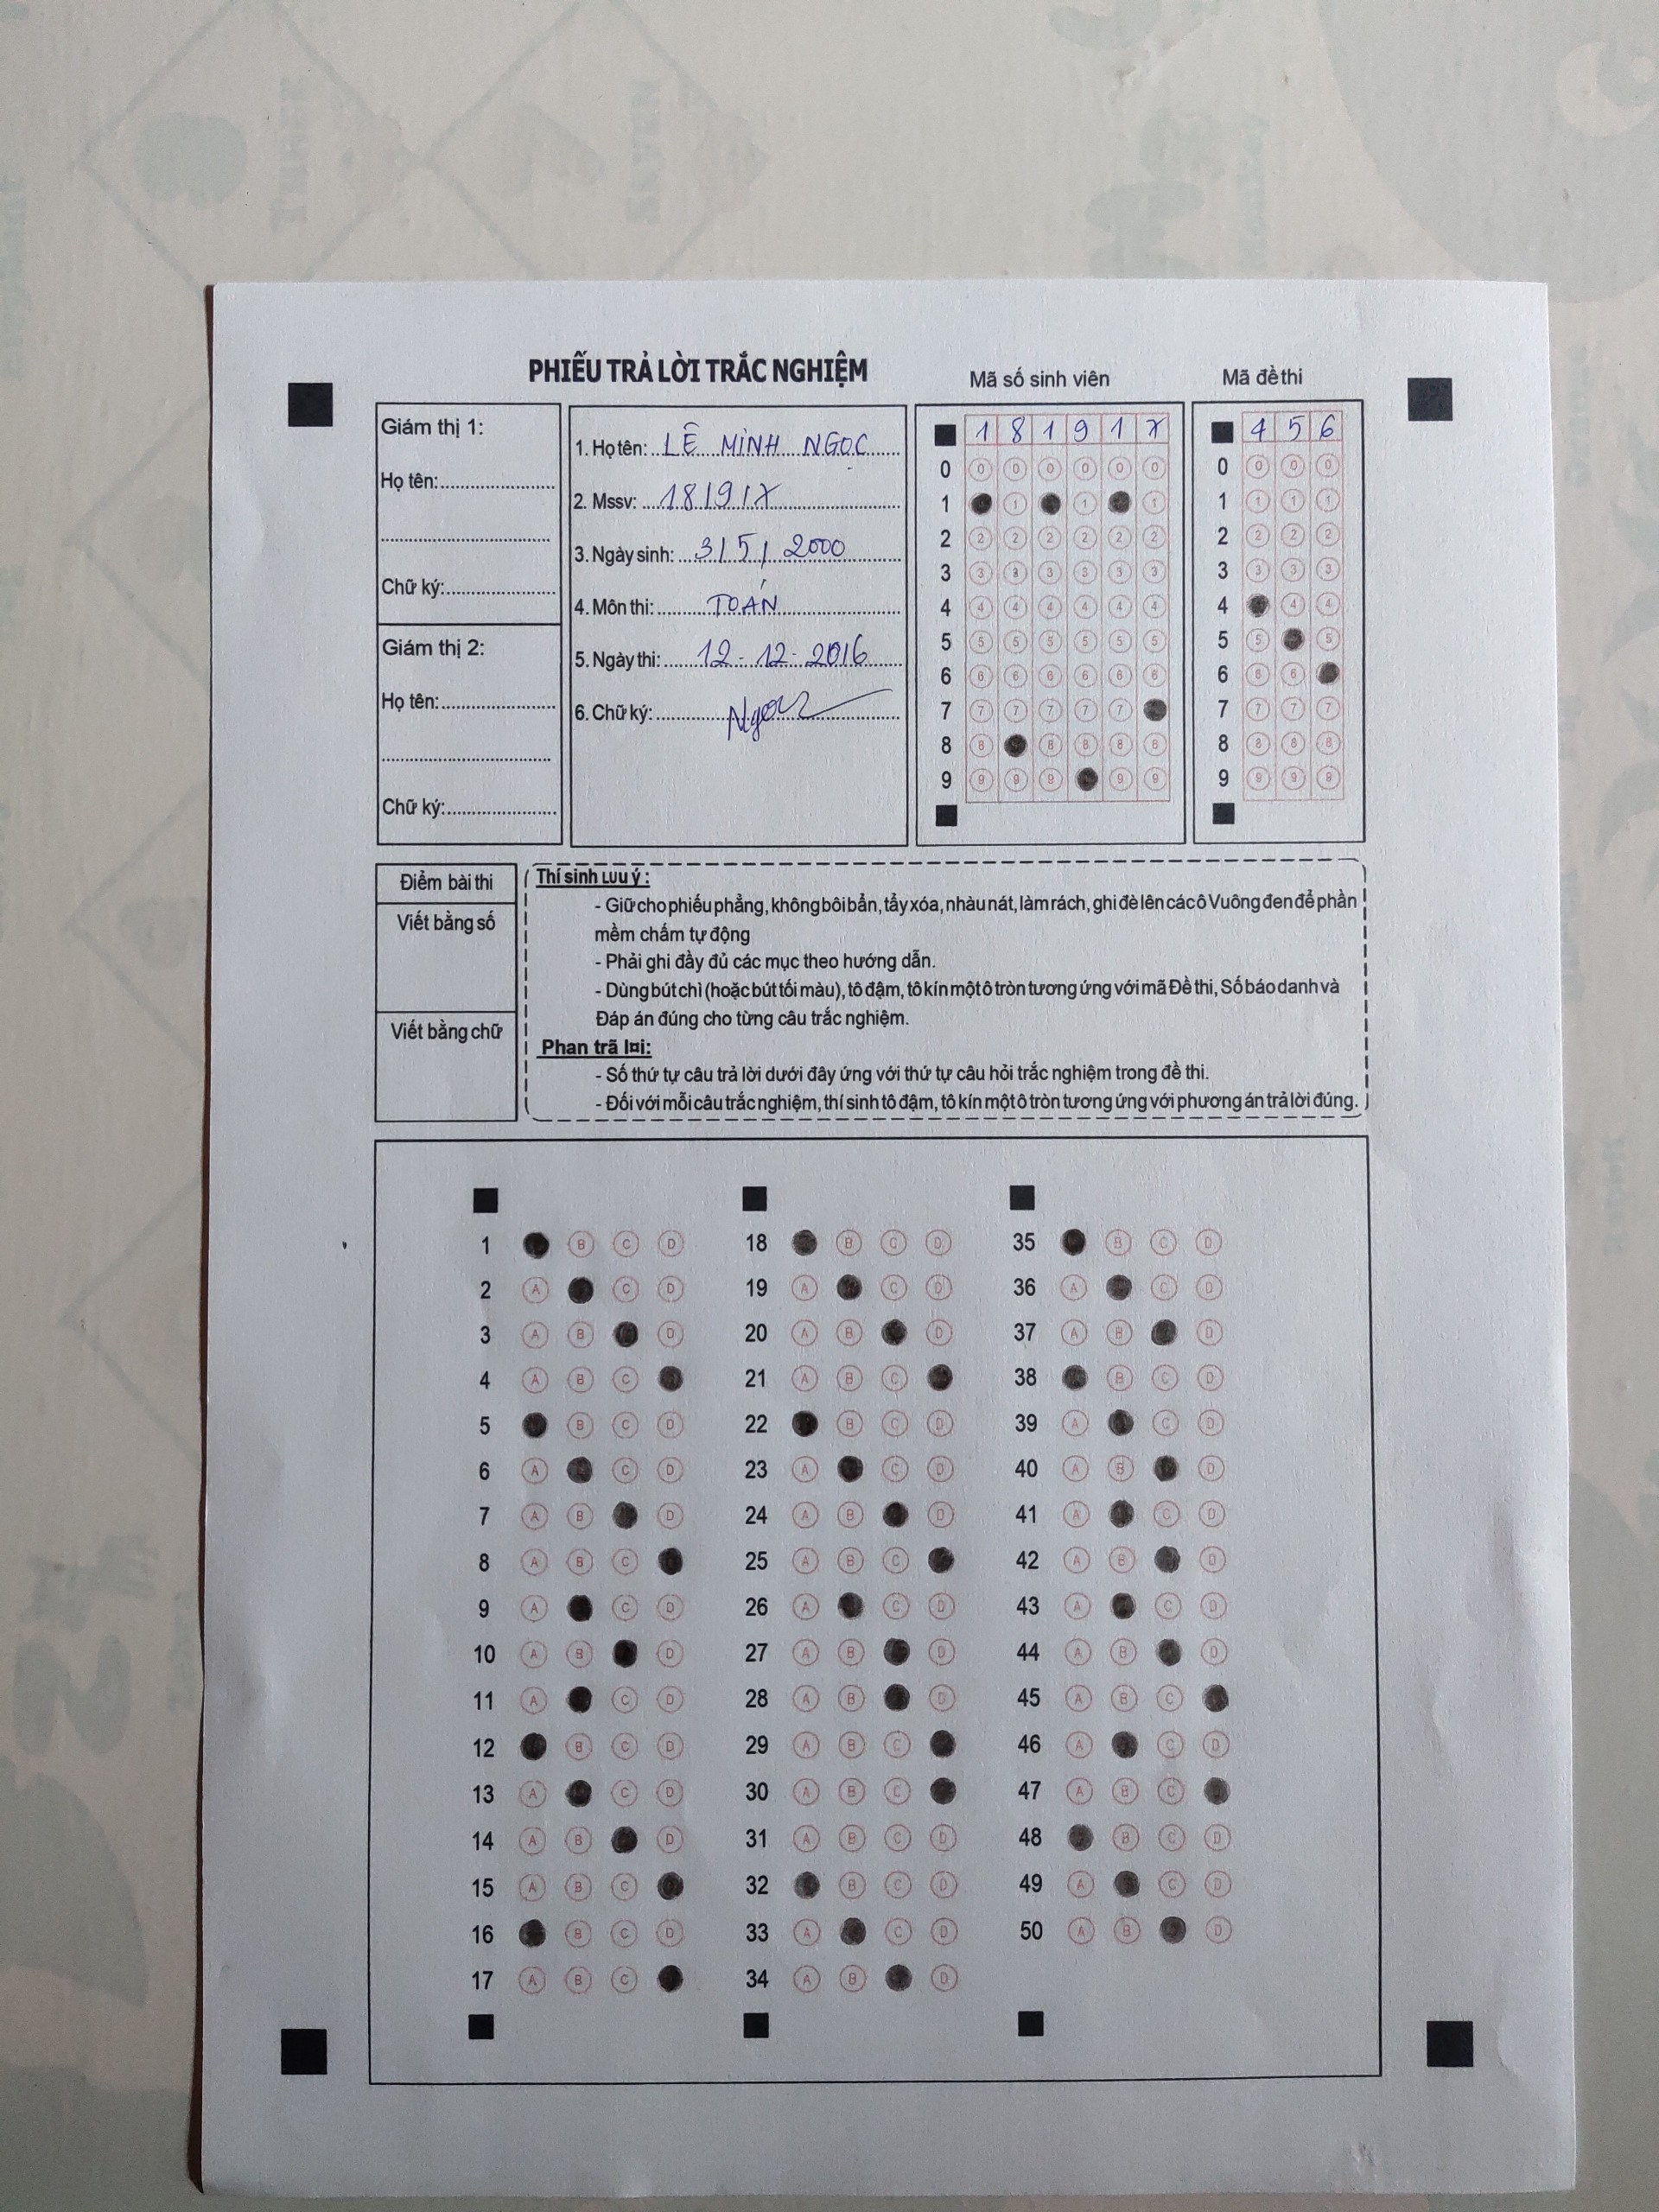 PHIẾU TRẢ LỜI TRẮC NGHIỆM
Giám thị 1:
Họ tên:
Chữ ký:
Giám thị 2:
Họ tên:
Chữ ký:
1. Họ tên: LÊ MINH NGỌC
2. Mssv: 181917
3. Ngày sinh: 3/5/2000
4. Môn thi: TOÁN
5. Ngày thi: 12-12-2016
6. Chữ ký: Ngọc
Mã số sinh viên
1 8 1 9 1 7
0 0 0 0 0 0
1 1 1
2 2 2 2 2 2 2
3 3 3 3 3 3 3
4 4 4 4 4 4 4
5 5 5 5 5 5 5
6 6 6 6 6 6 6
7 7 7 7 7 7
8 8 8 8 8 8
9 9 9 9 9 9
Mã đề thi
4 5 6
0 0 0 0
1 1 1 1
2 2 2 2
3 3 3 3
4 4 4
5 5 5
6 6 6
7 7 7 7
8 8 8 8
9 9 9 9
Điểm bài thi
Viết bằng số
Viết bằng chữ
Thí sinh Lưu ý :
- Giữ cho phiếu phẳng, không bôi bẩn, tẩy xóa, nhàu nát, làm rách, ghi đè lên các ô Vuông đen để phần
mềm chấm tự động
- Phải ghi đầy đủ các mục theo hướng dẫn.
- Dùng bút chì (hoặc bút tối màu), tô đậm, tô kín một ô tròn tương ứng với mã Đề thi, Số báo danh và
Đáp án đúng cho từng câu trắc nghiệm.
Phan trã l¤i:
- Số thứ tự câu trả lời dưới đây ứng với thứ tự câu hỏi trắc nghiệm trong đề thi.
- Đối với mỗi câu trắc nghiệm, thí sinh tô đậm, tô kín một ô tròn tương ứng với phương án trả lời đúng.
1 B C D
2 A C D
3 A B D
4 A B C
5 B C D
6 A C D
7 A B D
8 A B C
9 A C D
10 A B D
11 A C D
12 B C D
13 A C D
14 A B D
15 A B C
16 B C D
17 A B C
18 B C D
19 A C D
20 A B D
21 A B C
22 B C D
23 A C D
24 A B D
25 A B C
26 A C D
27 A B D
28 A B D
29 A B C
30 A B C
31 A B C D
32 B C D
33 A C D
34 A B D
35 B C D
36 A C D
37 A B D
38 B C D
39 A C D
40 A B D
41 A C D
42 A B D
43 A C D
44 A B D
45 A B C
46 A C D
47 A B C
48 B C D
49 A C D
50 A B D